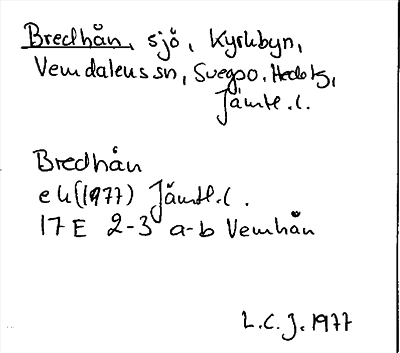 Bredhån, sjö, Kyrkbyn,
Vemdalens sn, Svegs o. Hedes tg,
Jämtl. l.
Bredhån
ek (1977) Jämtl. l.
17 E 2-3 a-b Vemhån
L.C.J. 1977